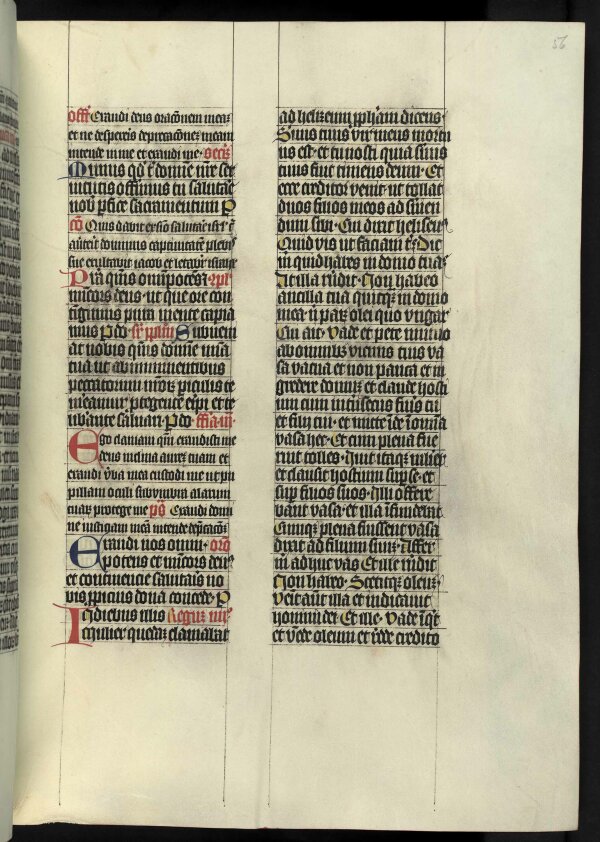 56
Off Exaudi deus oracionem meam
et ne despexeris deprecacionem meam
intende in me et exaudi me. Secr
Munus qd tibi domine nre ser
uitutis offerimus tu salutare
nobis perfice sacramentum P
Co Quis dabit ex sion salutare isrl
auerterit dominus captiuitatem plebis
sue exultabit iacob et letabitur israel
Pra quesumus omnipotens
misericors deus. ut que ore con
tingimus pura mente capia
mus P do sr pplm Subueni
at nobis quesumus domine mia
tua ut ab imminentibus
peccatorum nrorum periculis te
mereamur protegente eripi et te
liberante saluari. P do. fra iii
Ego clamaui quoniam exaudisti me
deus inclina aurem tuam et
exaudi verba mea custodi me ut pu
pillam oculi sub umbra alarum
tuarum protege me ps Exaudi domi
ne iusticiam meam intende deprecacionem
Exaudi nos omni oro
potens et misericors deus
et continencie salutaris no
bis propicius dona concede. P
In diebus illis Regum iiii
Mulier quedam clamabat
ad helizeum prophetam dicens
Seruus tuus vir meus mortu
us est. et tu nosti quia seruus
tuus fuit timens deum. Et
ecce creditor venit ut tollat
duos filios meos ad seruien
dum sibi. Cui dixit heliseus
Quid vis ut faciam tibi. Dic
michi quid habes in domo tua
At illa respondit. Non habeo
ancilla tua quicquam in domo
mea nisi parum olei quo vngar
Cui ait. Vade et pete mutuo
ab omnibus vicinis tuis va
sa vacua et non pauca et in
gredere domum et claude hosti
um cum intrinsecus fueris tu
et filii tui. et mitte inde in omnia
vasa hec. Et cum plena fue
rint tolles. Iuit itaque mulier
et clausit hostium super se. et
super filios suos. Illi offere
bant vasa. et illa infundebat
Cumque plena fuissent vasa
dixit ad filium suum. Affer
michi adhuc vas. Et ille respondit
Non habeo. Stetitque oleum
Venit autem illa et indicauit
homini dei. Et ille. Vade inquit
et vende oleum et redde credito